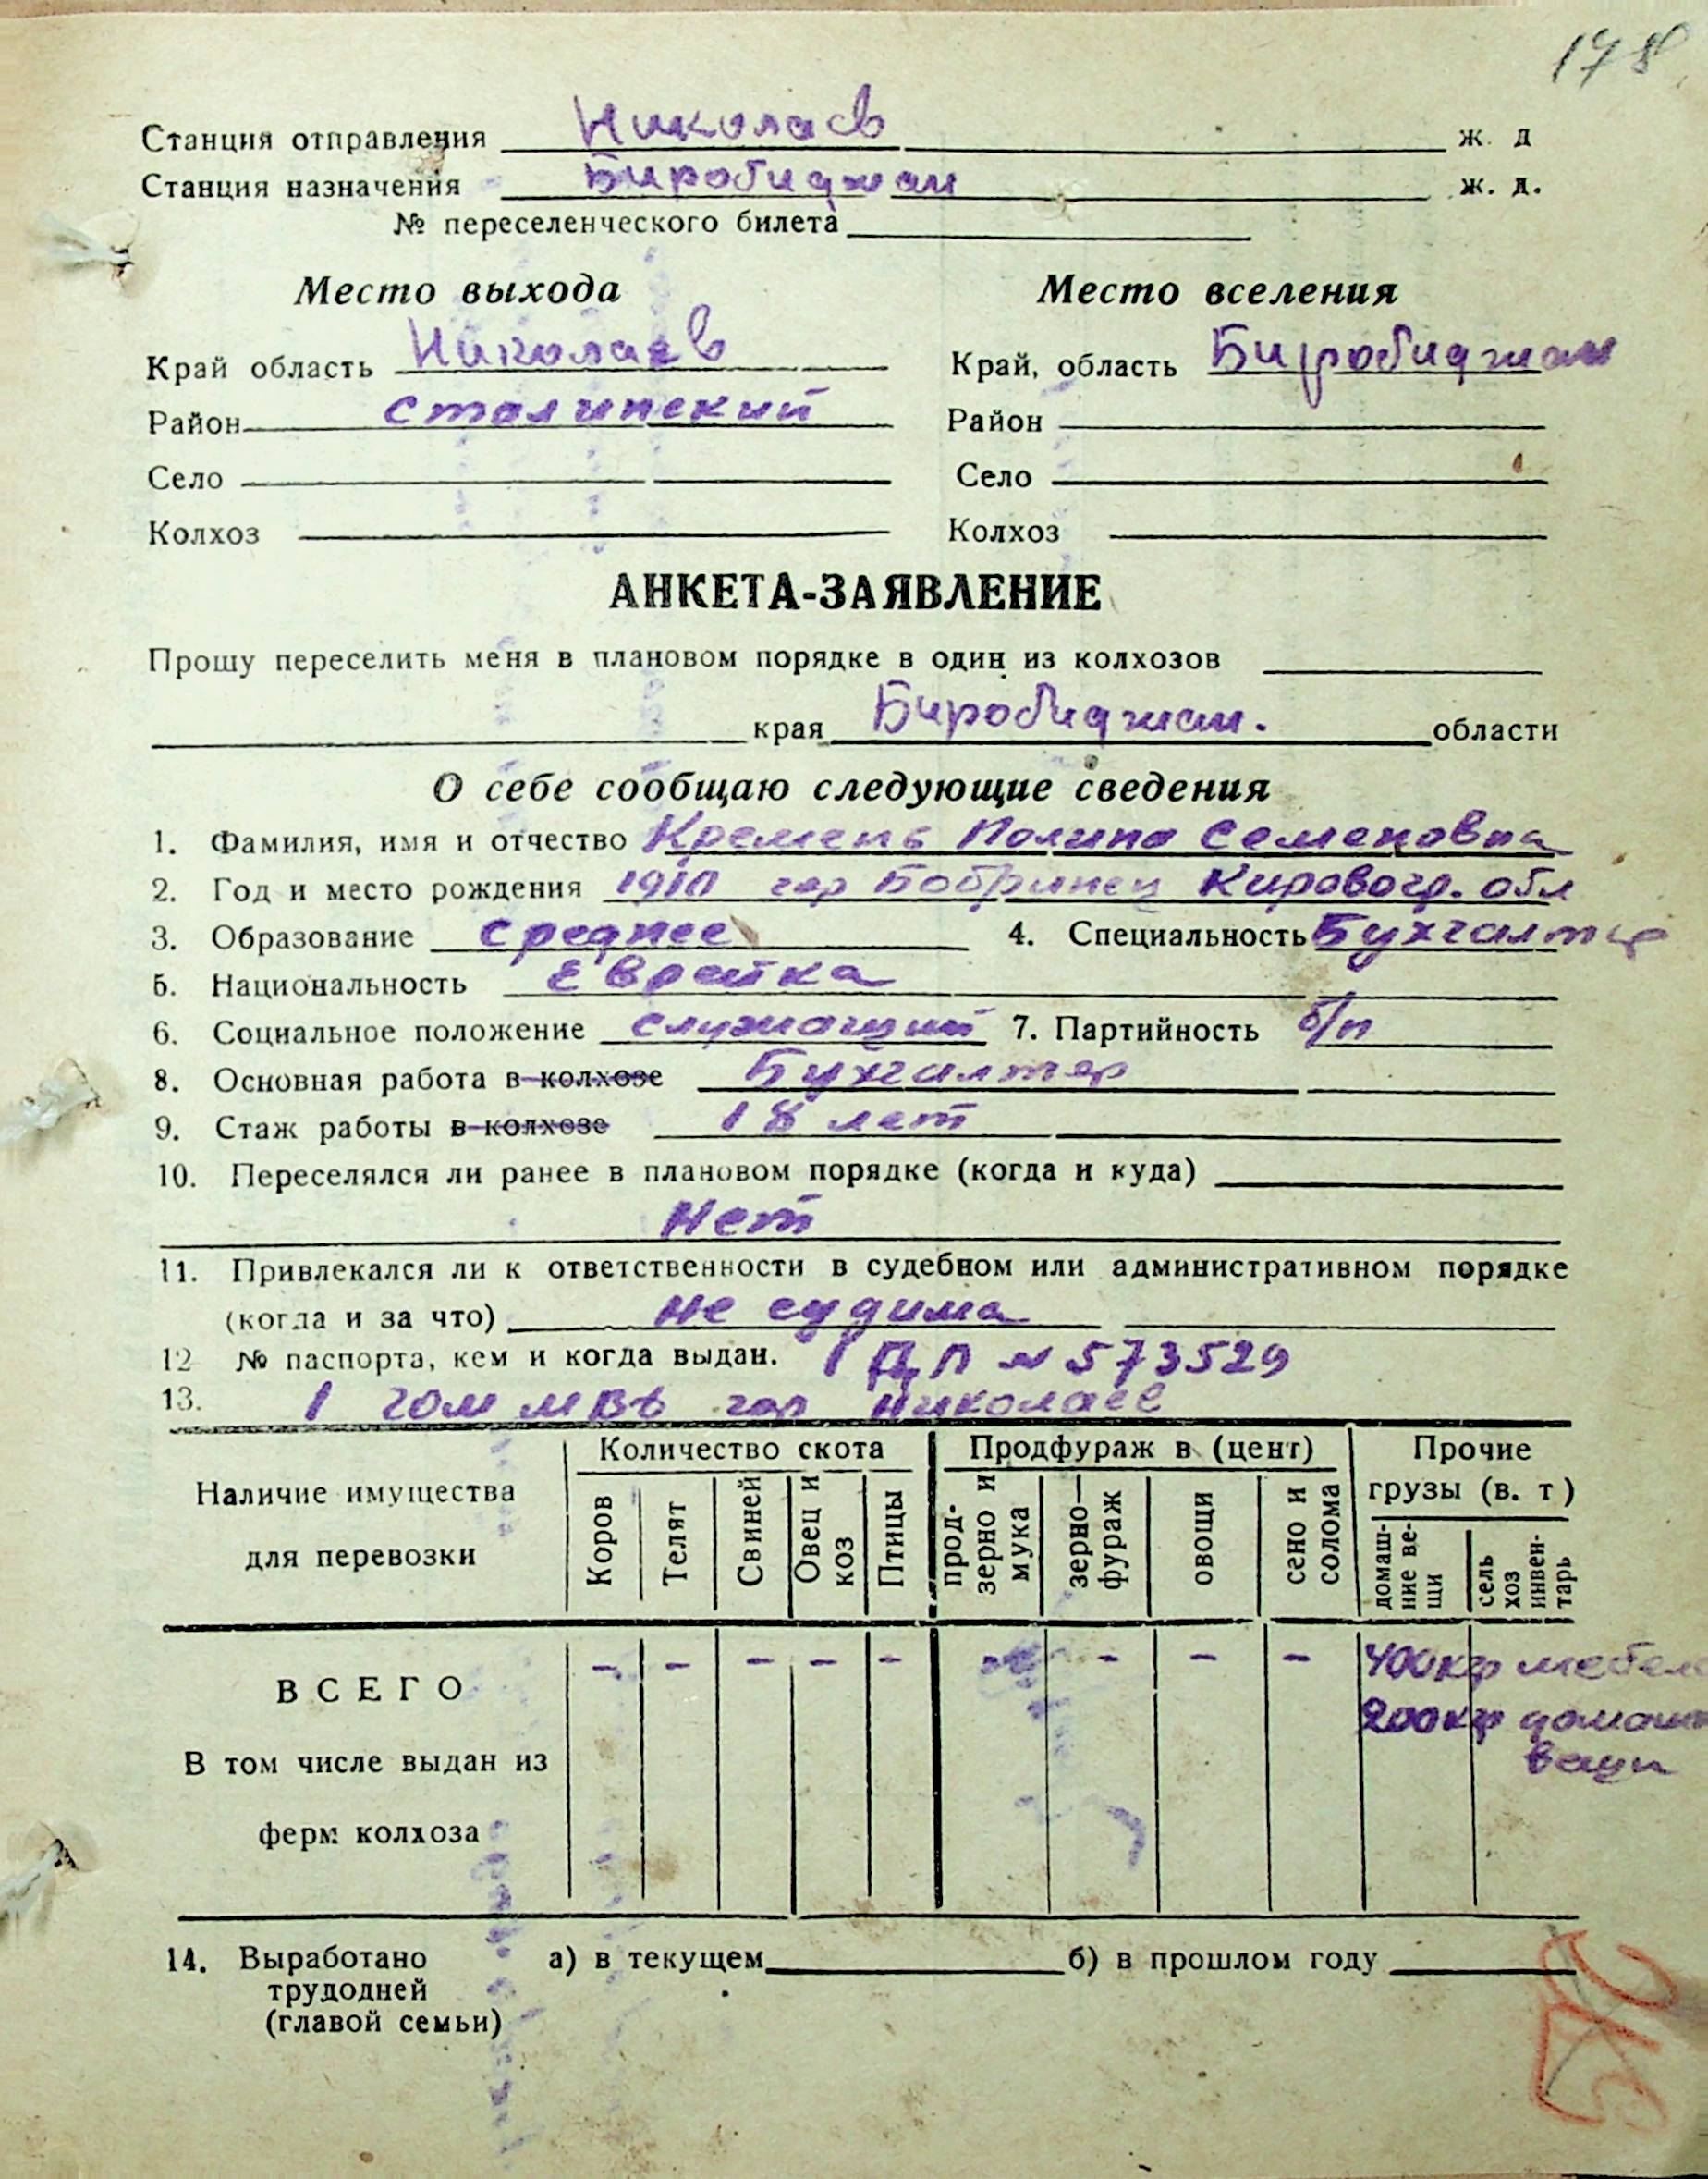 178
Станция отправления Николаев ж. д
Станция назначения Биробиджан ж. д.
№ переселенческого билета
Место выхода Место вселения
Край область Николаев Край, область Биробиджан
Район Сталинский Район
Село Село
Колхоз Колхоз
АНКЕТА-ЗАЯВЛЕНИЕ
Прошу переселить меня в плановом порядке в один из колхозов
края Биробиджан. области
О себе сообщаю следующие сведения
1. Фамилия, имя и отчество Кремень Полина Семеновна
2. Год и место рождения 1910 гор Бобринец Кировогр. обл
3. Образование Среднее 4. Специальность Бухгалтер
5. Национальность Еврейка
6. Социальное положение служащий 7. Партийность б/п
8. Основная работа в колхозе Бухгалтер
9. Стаж работы в колхозе 18 лет
10. Переселялся ли ранее в плановом порядке (когда и куда)
Нет
11. Привлекался ли к ответственности в судебном или административном порядке
(когда и за что) не судима
12 № паспорта, кем и когда выдан. N 573529
13. 1 гом МВД гор Николаев
Количество скота Продфураж в (цент) Прочие
Наличие имущества грузы (в. т)
для перевозки Коров Телят Свиней Овец и коз Птицы прод-зерно и мука зерно-фураж овощи сено и солома домаш-ние ве-щи сель хоз инвен-тарь
ВСЕГО - - - - - - - - 400кгр мебел
200кгр домашн
вещи
В том числе выдан из
ферм колхоза
14. Выработано а) в текущем б) в прошлом году
трудодней
(главой семьи)